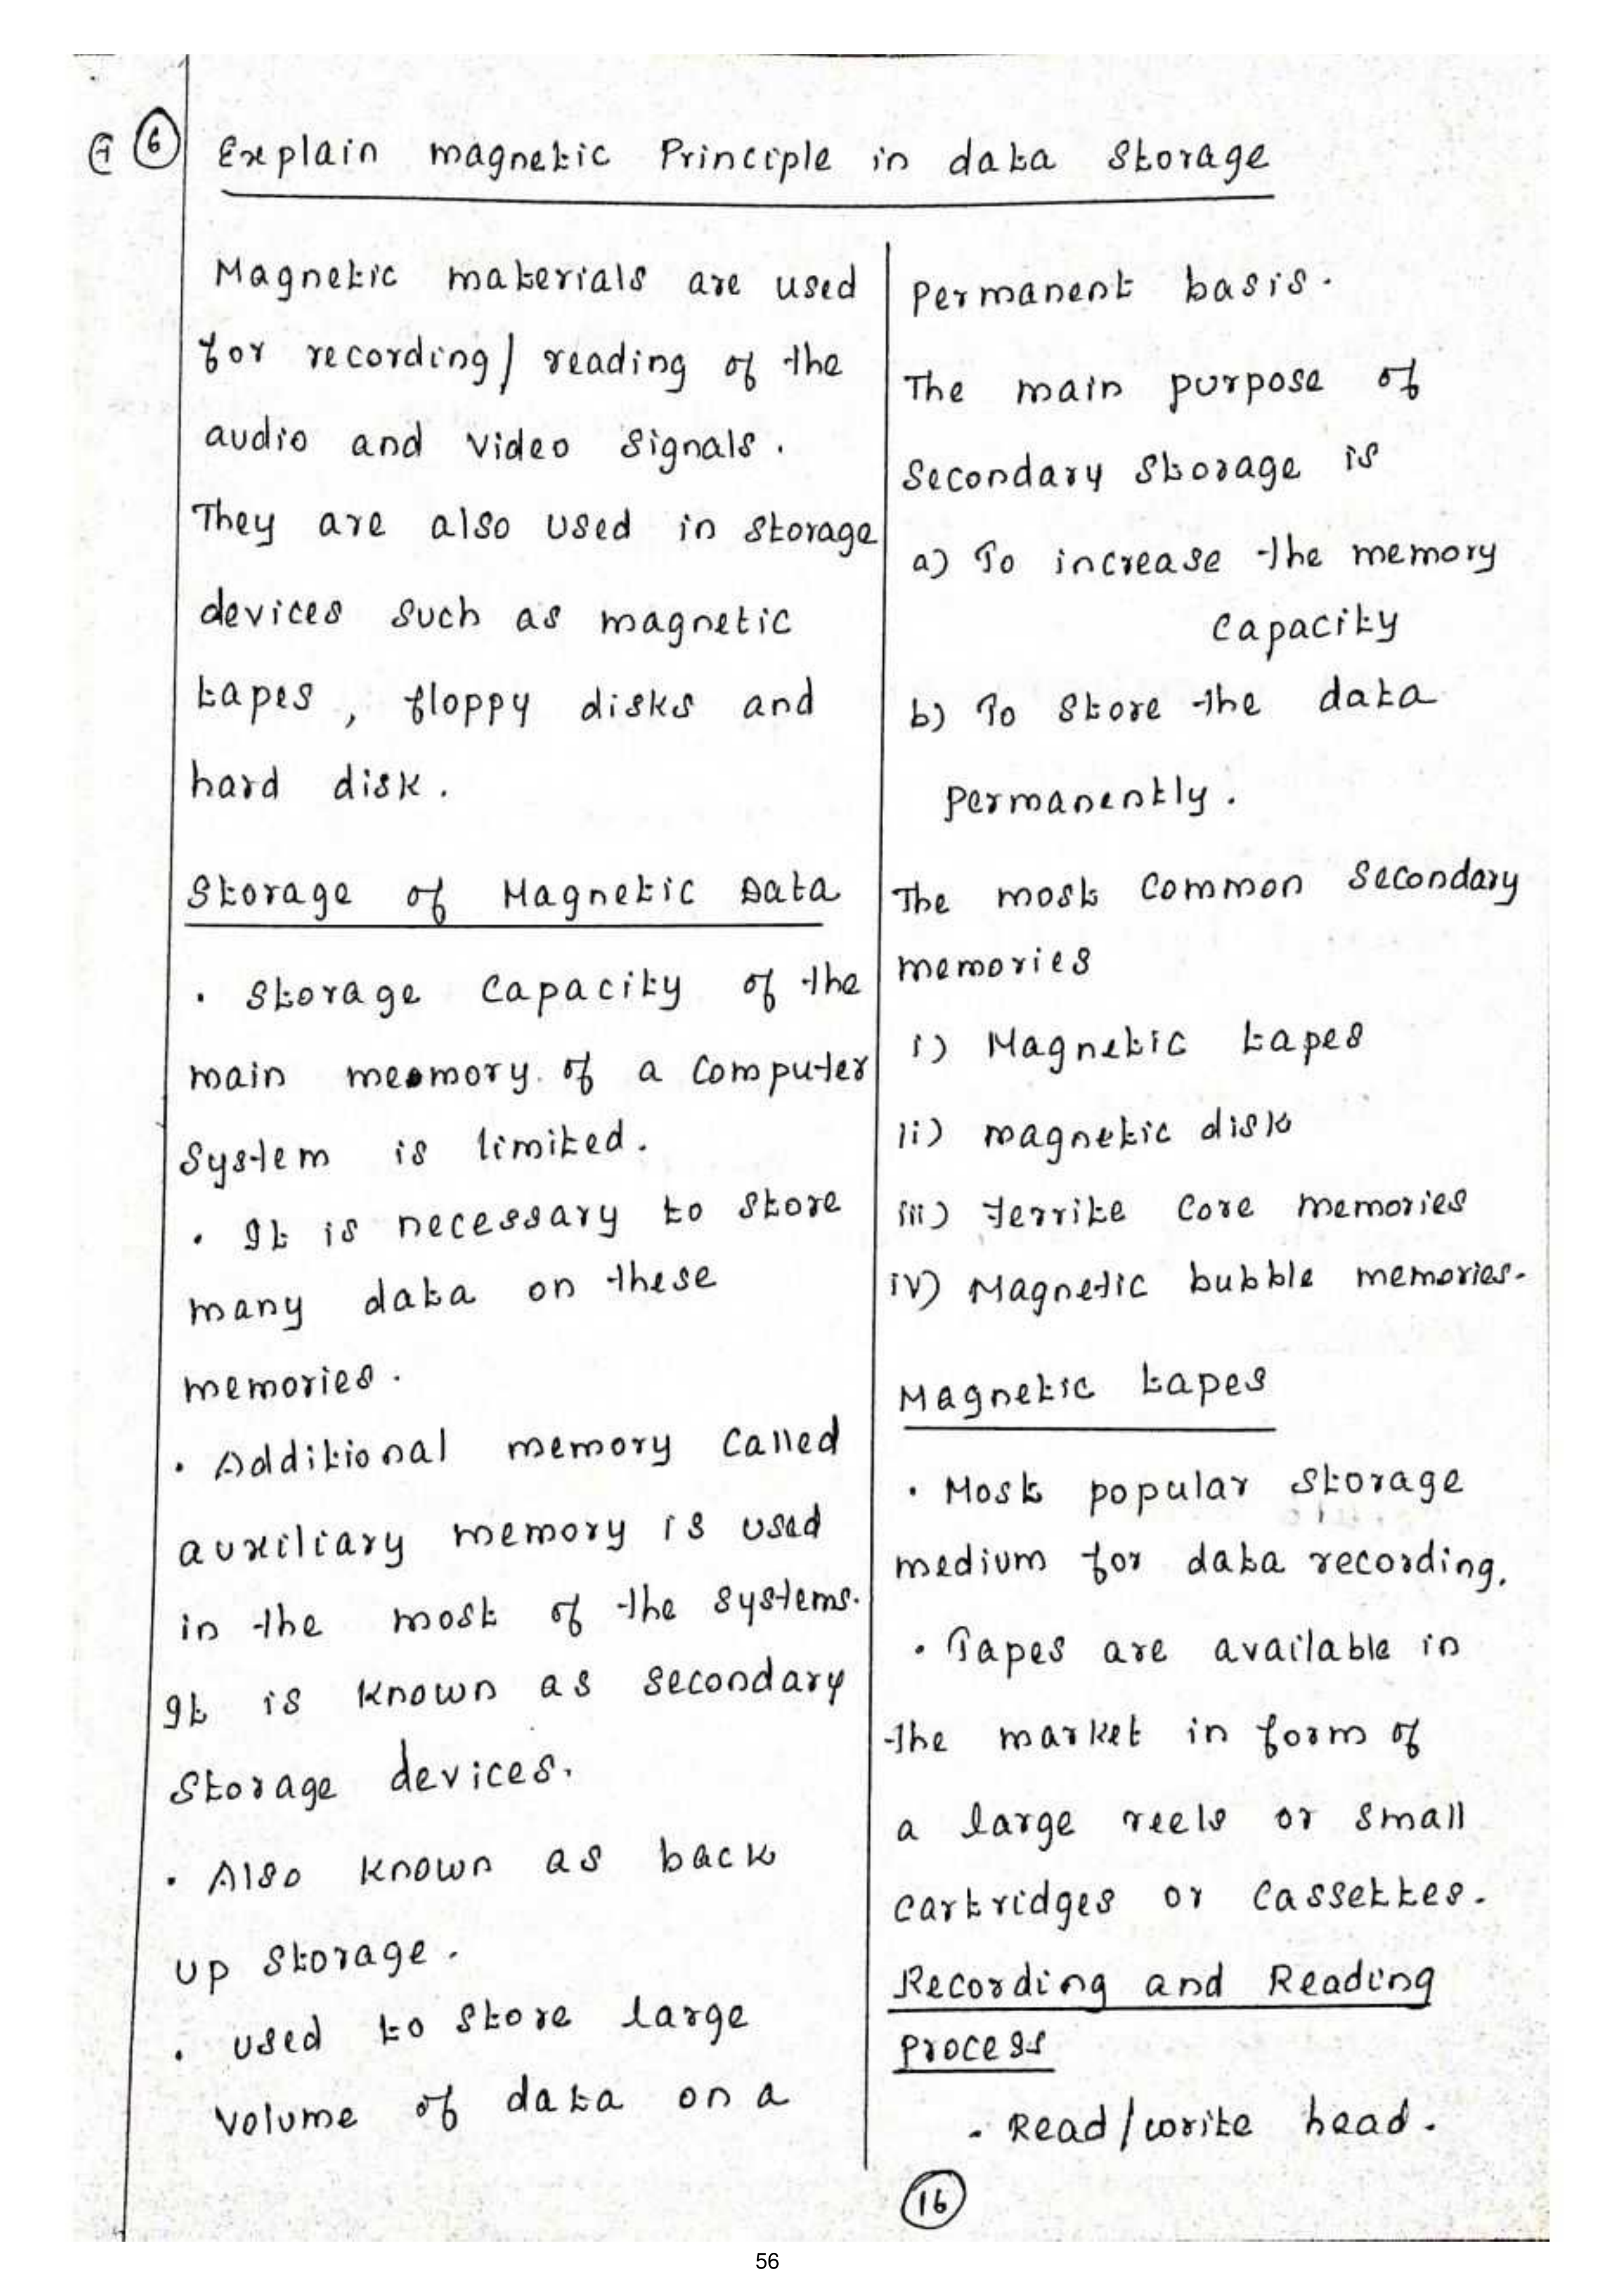 G 6 Explain magnetic Principle in data Storage
Magnetic materials are used
for recording/reading of the
audio and video Signals.
They are also used in storage
devices such as magnetic
tapes, floppy disks and
hard disk.
Storage of Magnetic Data
• Storage Capacity of the
main memory of a Computer
System is limited.
• It is necessary to store
many data on these
memories.
• Additional memory Called
auxiliary memory is used
in the most of the systems.
It is known as secondary
Storage devices.
• Also known as back
up storage.
• used to store large
volume of data on a
Permanent basis.
The main purpose of
Secondary Storage is
a) To increase the memory
Capacity
b) To Store the data
permanently.
The most Common Secondary
memories
i) Magnetic tapes
ii) magnetic disk
iii) ferrite Core memories
iv) Magnetic bubble memories.
Magnetic tapes
• Most popular storage
medium for data recording.
• Tapes are available in
the market in form of
a large reels or small
Cartridges or Cassettes.
Recording and Reading
Process
• Read/write head.
16
56